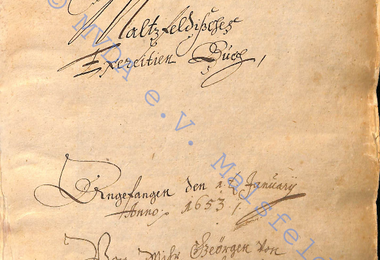 Maltzfeldisches
Exercitien Buch,
Angefangen den 1 January
Anno: 1653 /.
Von Mihr Geörgen Von
© MVDA e.V. Malsfeld